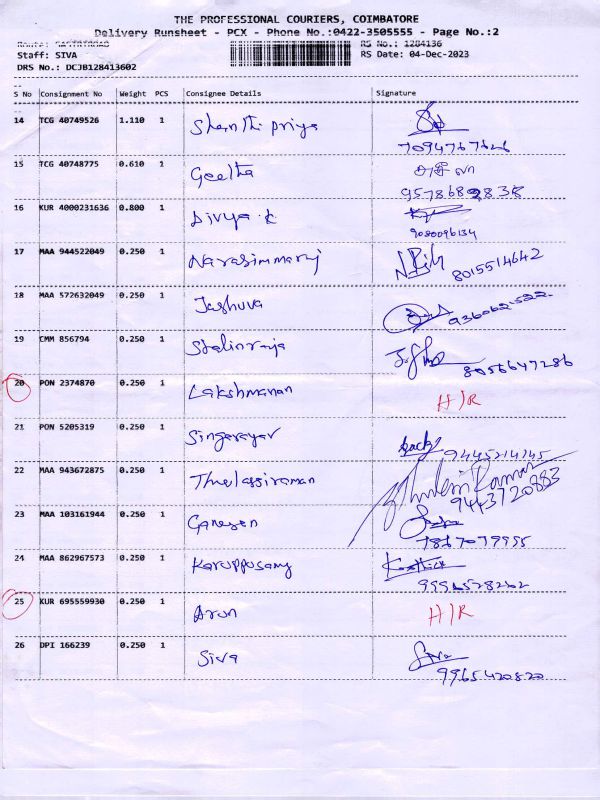 THE PROFESSIONAL COURIERS, COIMBATORE
Delivery Runsheet - PCX - Phone No.:0422-3505555 - Page No.:2
RS No.: 1284136
Staff: SIVA RS Date: 04-Dec-2023
DRS No.: DCJB128413602
S No Consignment No Weight PCS Consignee Details Signature
14 TCG 40749526 1.110 1 Shanthi priya
15 TCG 40748775 0.610 1 Geetha
16 KUR 4000231636 0.800 1 Divya.k
9080096134
17 MAA 944522049 0.250 1 Narasimmaraj 8015514642
18 MAA 572632049 0.250 1 Jashuva
19 CMM 856794 0.250 1 Stalinraja
8056647286
20 PON 2374870 0.250 1 Lakshmanan H/R
21 PON 5205319 0.250 1 Singarayar
9445214745
22 MAA 943672875 0.250 1 Thulassiraman
9443720883
23 MAA 103161944 0.250 1 Ganesan
7867079955
24 MAA 862967573 0.250 1 Karuppusamy Karthick
25 KUR 695559930 0.250 1 Arun H/R
26 DPI 166239 0.250 1 Siva Siva
9965420820